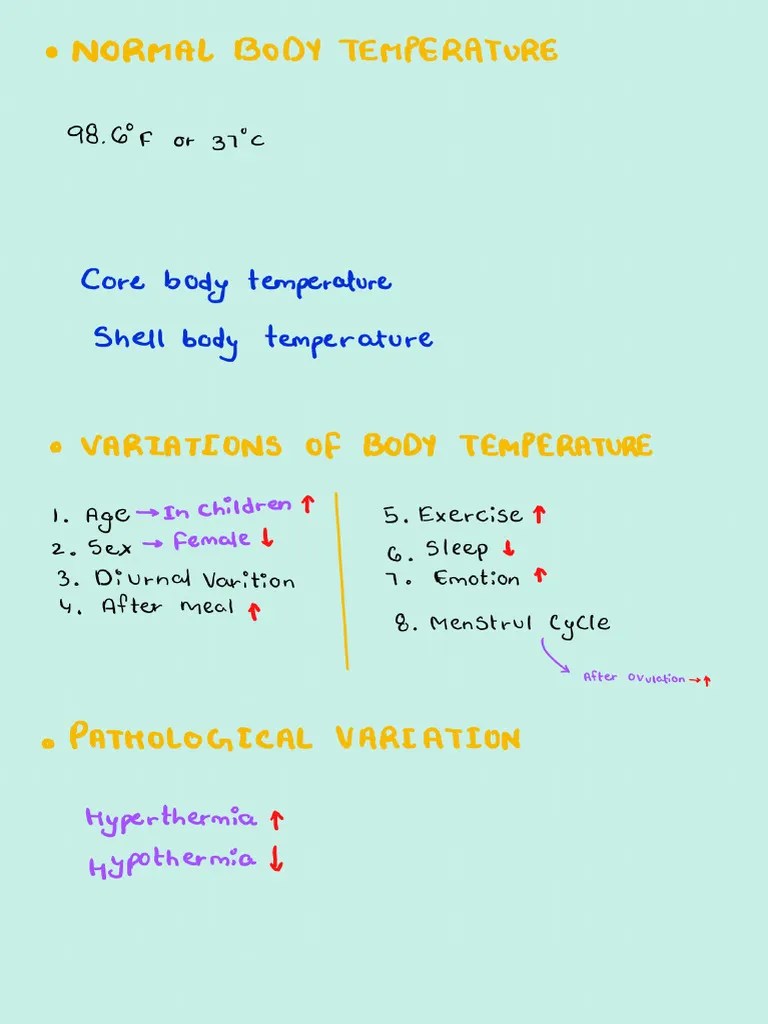 • NORMAL BODY TEMPERATURE
98.6°F or 37°C
Core body temperature
Shell body temperature
• VARIATIONS OF BODY TEMPERATURE
1. Age → In Children ↑
2. Sex → Female ↓
3. Diurnal Varition
4. After meal ↑
5. Exercise ↑
6. Sleep ↓
7. Emotion ↑
8. Menstrul Cycle
After Ovulation → ↑
• PATHOLOGICAL VARIATION
Hyperthermia ↑
Hypothermia ↓